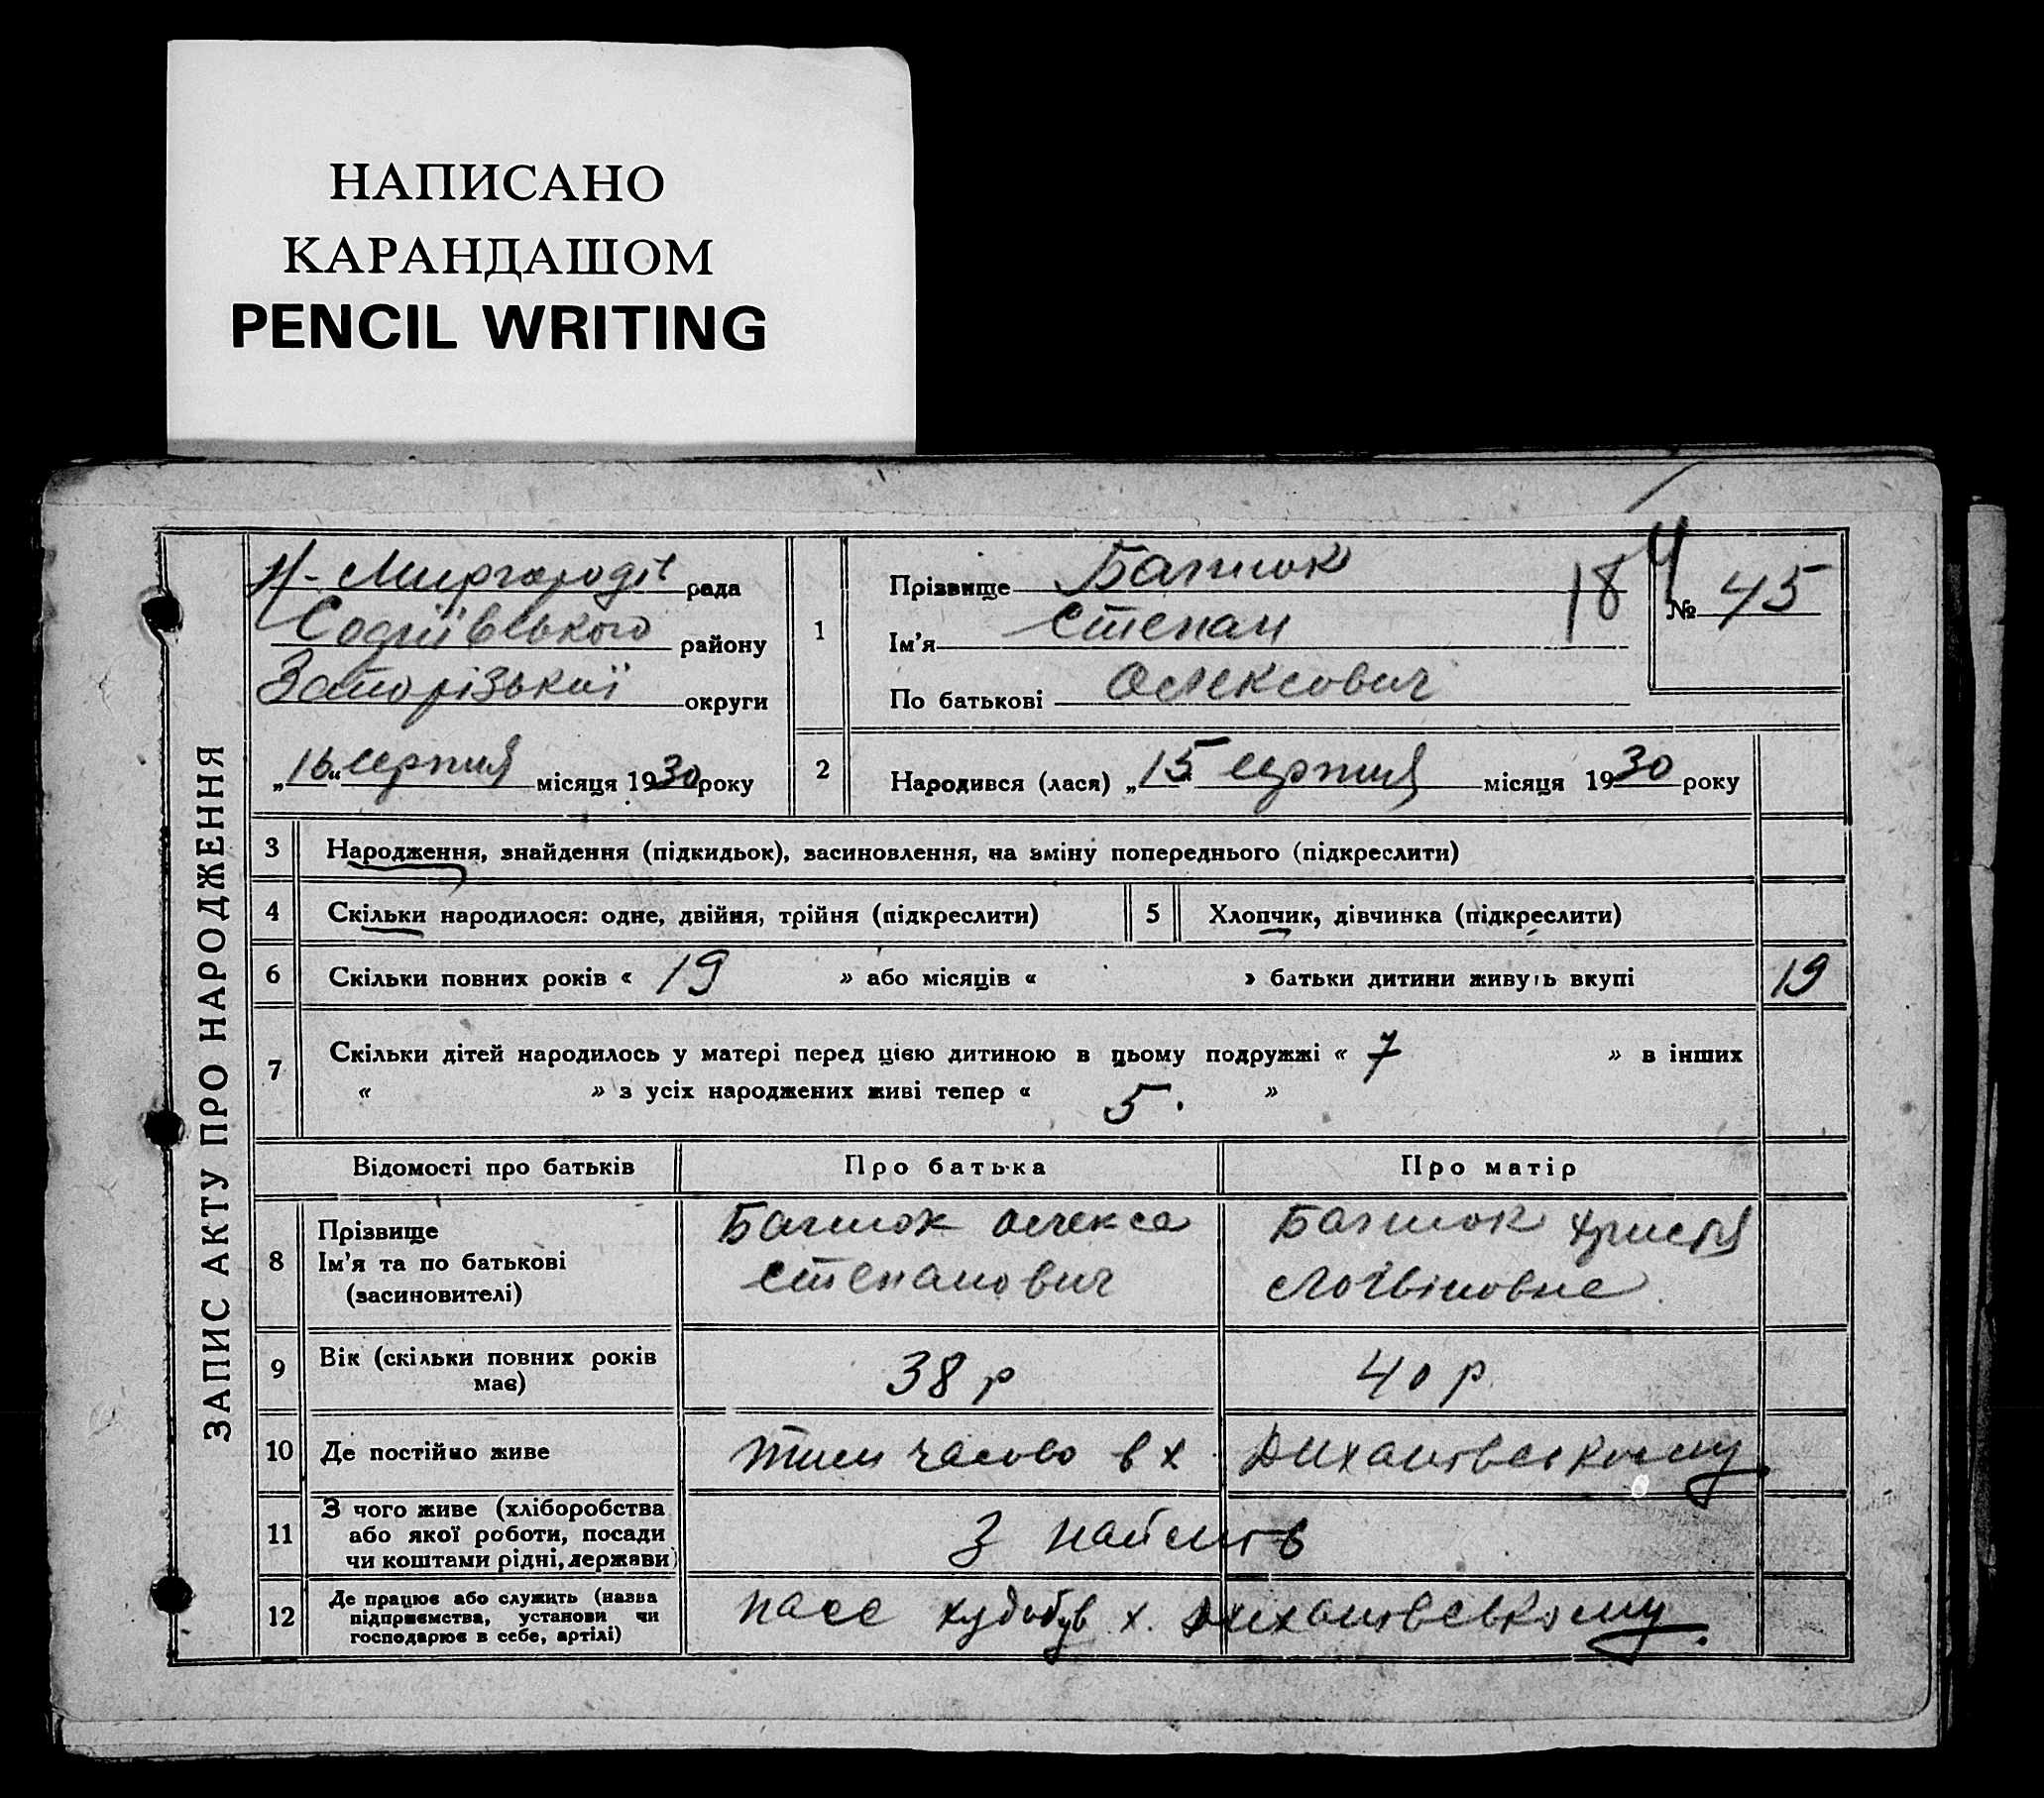 НАПИСАНО
КАРАНДАШОМ
PENCIL WRITING
ЗАПИС АКТУ ПРО НАРОДЖЕННЯ
Н-Миргородів рада
Софіївського району
Запорізької округи
„16“ серпня місяця 1930 року
1
Прізвище
Ім'я Степан
По батькові Олексович
184
№ 45
2
Народився (лася) „15 серпня місяця 1930 року
3 Народження, знайдення (підкидьок), засиновлення, на зміну попереднього (підкреслити)
4 Скільки народилося: одне, двійня, трійня (підкреслити)
5 Хлопчик, дівчинка (підкреслити)
6 Скільки повних років « 19 » або місяців « » батьки дитини живуть вкупі 19
7 Скільки дітей народилось у матері перед цією дитиною в цьому подружжі « 7 » в інших
« » з усіх народжених живі тепер « 5. »
Відомості про батьків Про батька Про матір
8
Прізвище
Ім'я та по батькові
(засиновителі)
Олекса
Степанович
Христя
Логвіновне
9
Вік (скільки повних років
має)
38 р
40 р
10 Де постійно живе
тимчасово в х
11
З чого живе (хліборобства
або якої роботи, посади
чи коштами рідні, держави)
З наймів
12
Де працює або служить (назва
підприємства, установи чи
господарює в себе, артілі)
пасе худобу в х.